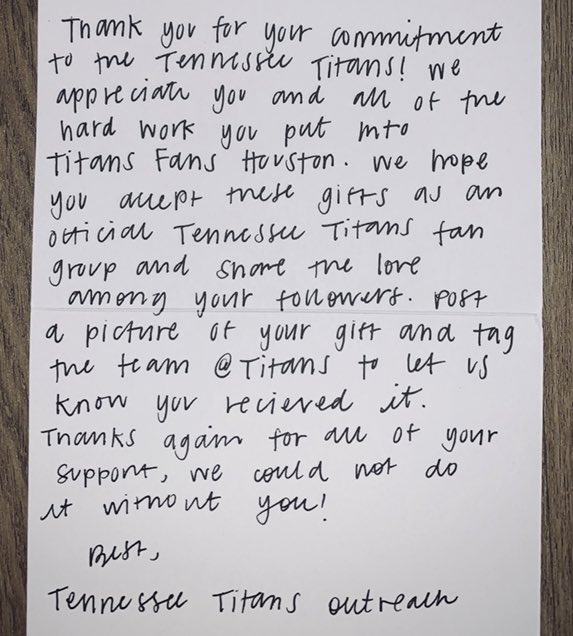 Thank you for your commitment
to the Tennessee Titans! We
appreciate you and all of the
hard work you put into
Titans Fans Houston. We hope
you accept these gifts as an
official Tennessee Titans fan
group and share the love
among your followers. Post
a picture of your gift and tag
the team @Titans to let us
know you recieved it.
Thanks again for all of your
support, we could not do
it without you!
Best,
Tennessee Titans outreach